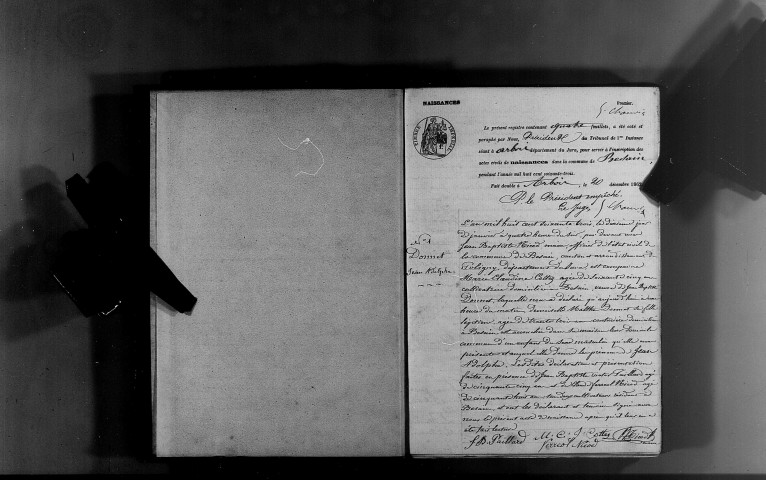 NAISSANCES
Premier.
Le présent registre contenant quatre feuillets, a été coté et
paraphé par Nous, Président du Tribunal de 1re Instance
séant à Arbois département du Jura, pour servir à l'inscription des
actes civils de naissances dans la commune de
pendant l'année mil huit cent soixante-trois.
Fait double à Arbois, le 20 décembre 1862
P. le Président empêché
Le Juge
TIMBRE IMPERIAL
No 1
Donnet
Jean Adolphe
L'an mil huit cent soixante trois, le dixième jour
de janvier à quatre heures du soir, par devant nous
Jean Baptiste maire, officier de l'état civil de
la commune de Besain, canton et arrondissement de
Poligny, département du Jura, est comparue
Marie Claudine agée de soixante cinq ans
cultivatrice domiciliée à Besain, veuve de Jean Baptiste
Donnet, laquelle nous a déclaré qu'aujourd'hui à
heures du matin, demoiselle Donnet sa fille
légitime, agée de trente trois ans couturière domiciliée
à Besain est accouchée dans la maison leur domicile
commun d'un enfant du sexe masculin qu'elle nous
présente et auquel elle donne les prénoms de Jean
Adolphe. Les dites déclaration et présentation
faites en présence de Jean Baptiste Paillard agé
de cinquante cinq ans et de agé
de cinquante huit ans tous deux cultivateurs à
Besain, et ont les déclarant et témoins signé avec
nous le présent acte de naissance après qu'il leur en a
été fait lecture
J B Paillard M. C.